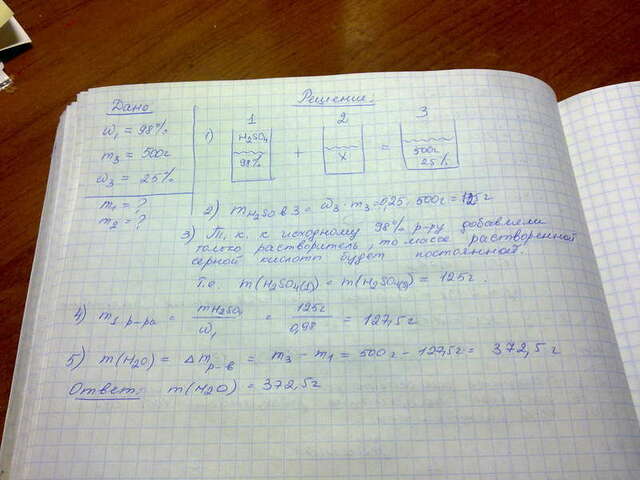 Дано
Решение.
ω₁ = 98%
m₃ = 500г
ω₃ = 25%
m₁ = ?
m₂ = ?
1 2 3
1) H₂SO₄ 98% + X = 500г 25%
2) m H₂SO₄ в 3 = ω₃ · m₃ = 0,25 · 500г = 125г
3) Т. к. к исходному 98% р-ру добавляем
только растворитель, то масса растворенной
серной кислоты будет постоянной.
т.е. m(H₂SO₄(1)) = m(H₂SO₄(3)) = 125г.
4) m₁ р-ра = mH₂SO₄ / ω₁ = 125г / 0,98 = 127,5г
5) m(H₂O) = Δ m р-в = m₃ - m₁ = 500г - 127,5г = 372,5г
Ответ: m(H₂O) = 372,5г